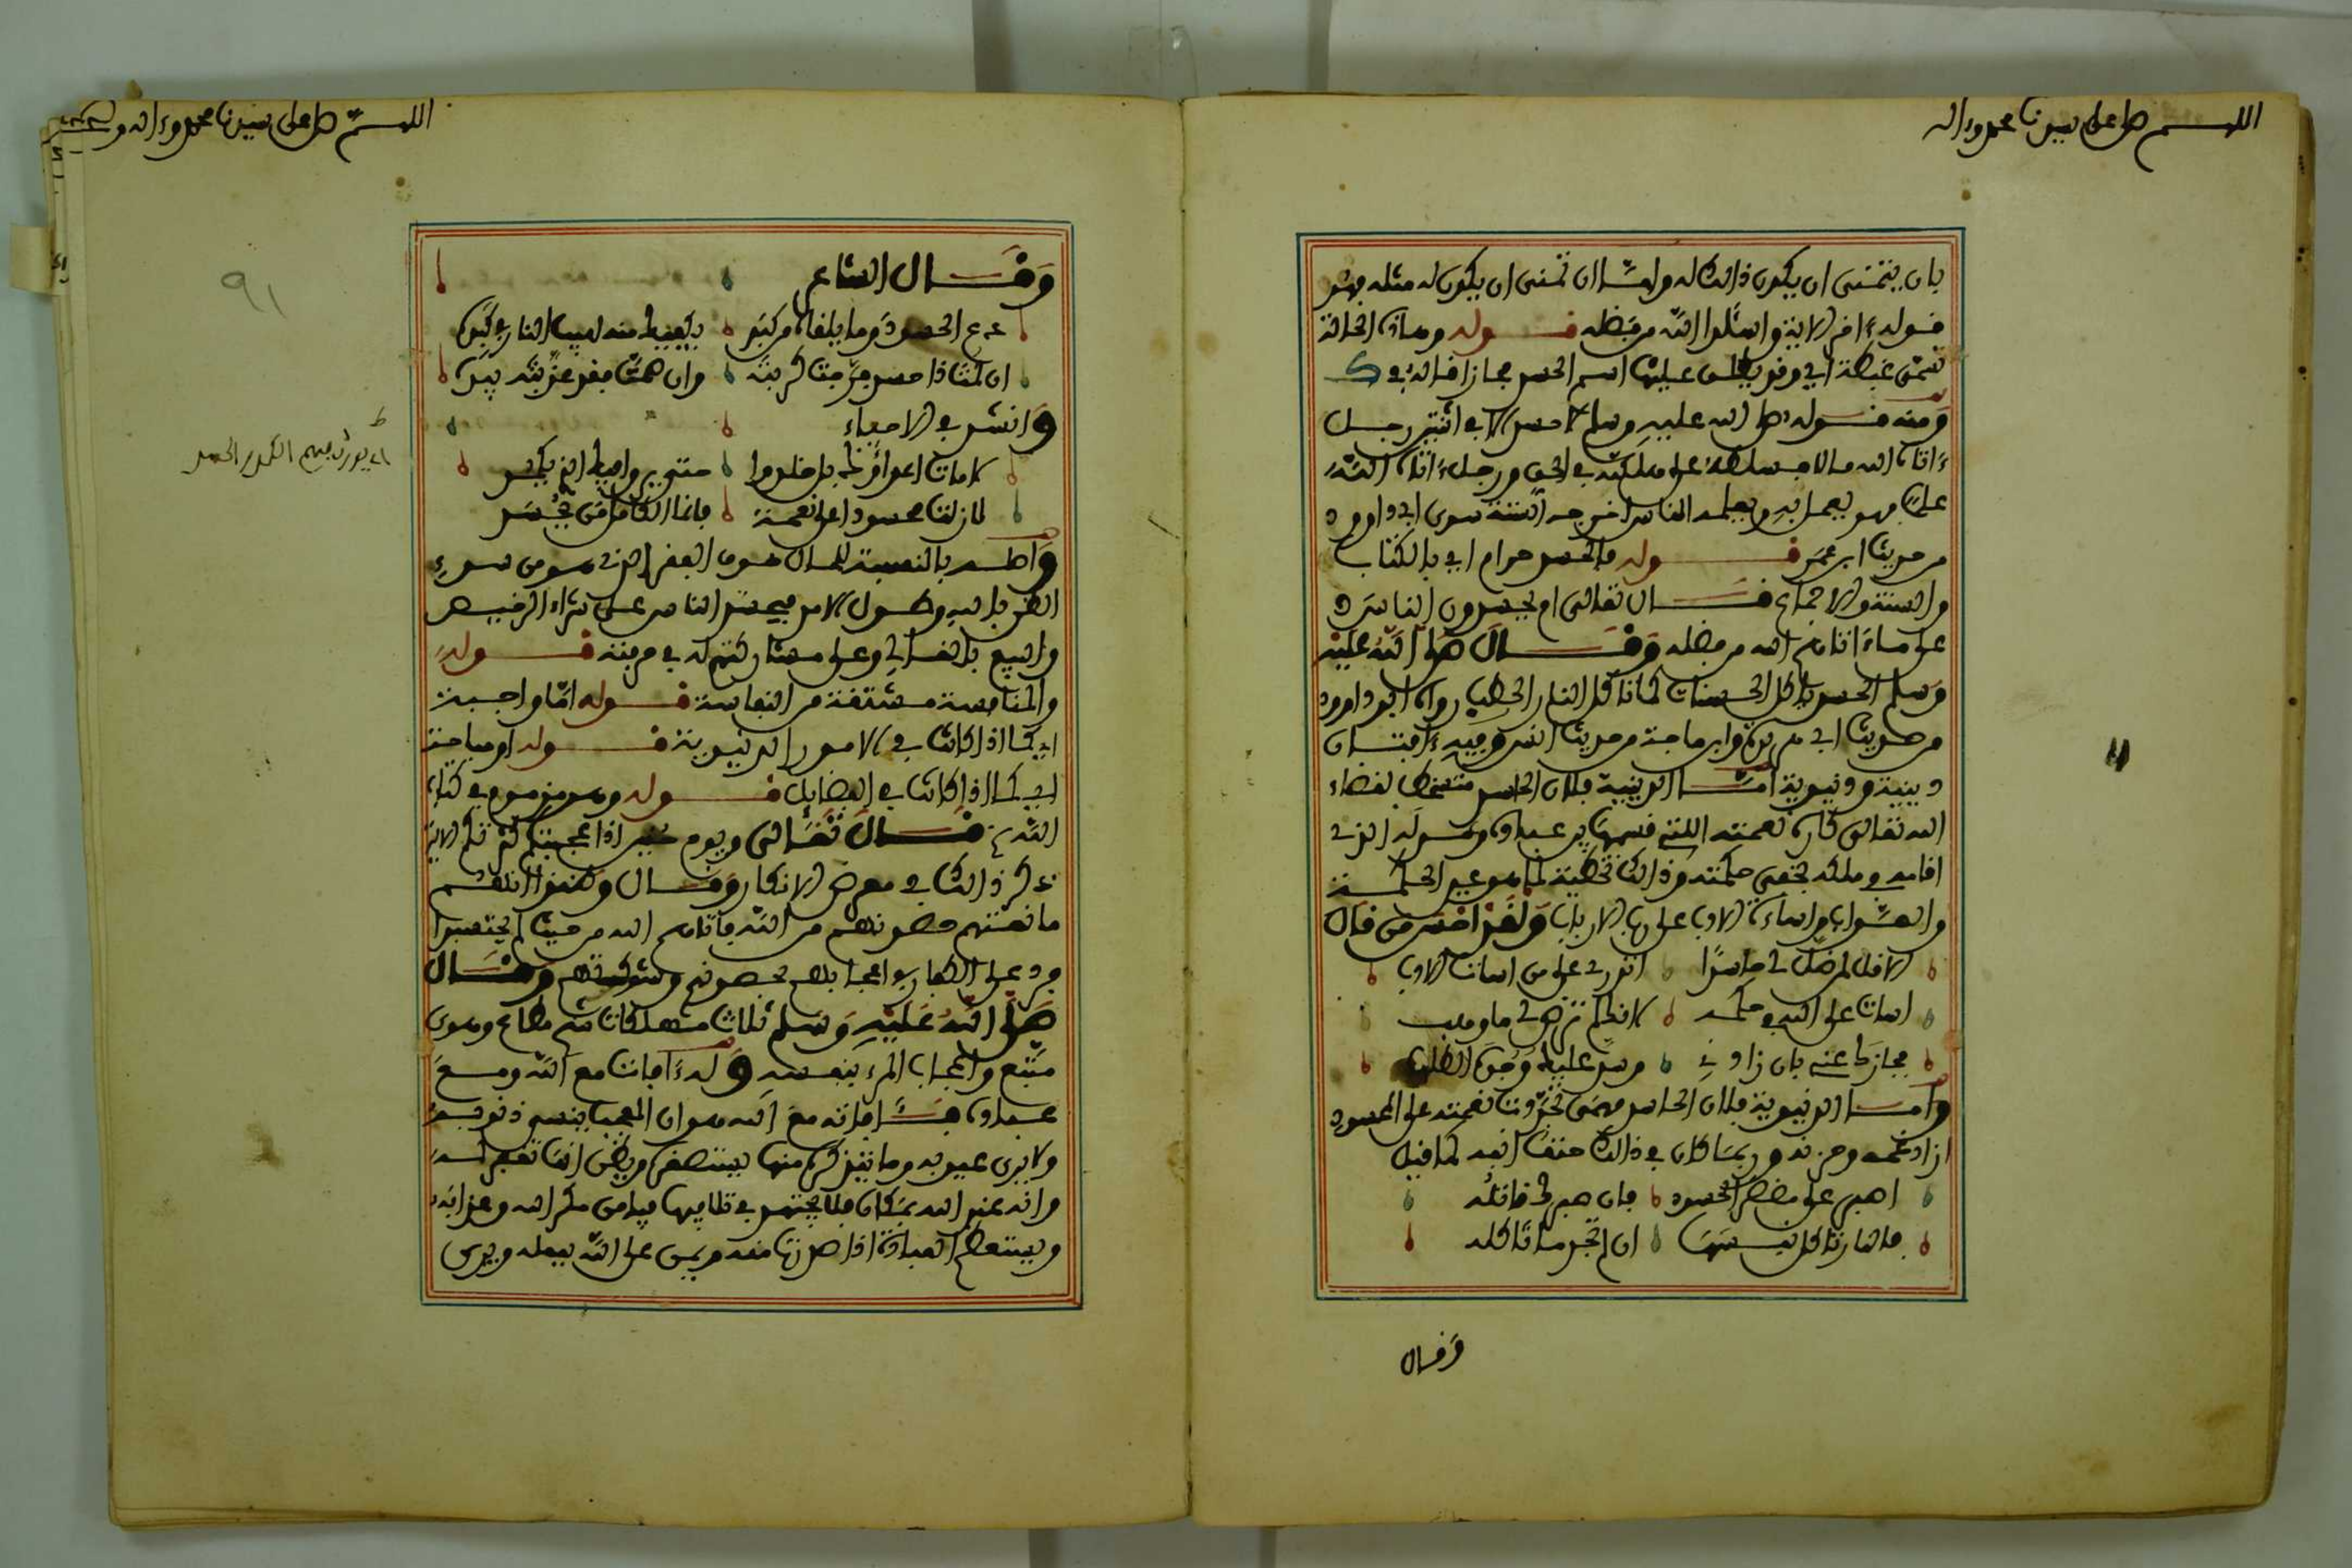 اللهم صل على سيدنا محمد وءاله
بان يتمنى ان يكون ذالك له ولما ان تمنى ان يكون له مثله فهو
قوله ءاخر الاية واسئلوا الله من فضله قوله وهاذه الحالة
تسمى غبطة اي وقد يطلق عليها اسم الحسد مجازا قاله في ك
ومنه قوله صلى الله عليه وسلم لا حسد الا في اثنتين رجل
ءاتاه الله مالا فسلطه على هلكته في الحق ورجل ءاتاه الله
علما فهو يعمل به ويعلمه الناس اخرجه الستة سوى ابي داوود
من حديث ابن عمر قوله فالحسد حرام اي بالكتاب
والسنة والاجماع قال تعالى ام يحسدون الناس
على ما ءاتاهم الله من فضله وقال صلى الله عليه
وسلم الحسد ياكل الحسنات كما تاكل النار الحطب رواه ابو داوود
من حديث ابي هريرة وابن ماجة من حديث انس وفيه ءافتان
دينية ودنيوية اما الدينية فلان الحاسد متسخط لقضاء
الله تعالى كاره لنعمته التي قسمها بين عباده وعدله الذي
اقامه في ملكه بخفي حكمته وذالك تخطية لما هو عين الحكمة
والصواب واساءة الادب على رب الارباب ولقد احسن من قال
الا قل لمن ظل لي حاسدا اتدري على من اسات الادب
اسات على الله في حكمه لانك لم ترض لي ما وهب
فجازاك عنه بان زادني وسد عليك وجوه الطلب
واما الدنيوية فلان الحاسد مهمى تجددت نعمته على المحسود
ازداد غمه وحزنه وربما كان في ذالك حتف انفه كما قيل
اصبر على مضض الحسود فان صبرك قاتله
فالنار تاكل نفسها ان لم تجد ما تاكله
وقال
اللهم صل على سيدنا محمد وءاله و
٩١
وقال الشاعر
دع الحسود وما يلقاه من كبد يكفيك منه لهيب النار في كبده
ان لمت ذا حسد فرجت كربته وان صمت فقد عذبته بيده
وانشد في الاحياء
لا مات اعداؤك بل خلدوا حتى يروا فيك الذي يكمد
لا زلت محسودا على نعمة فانما الكامل من يحسد
واصله بالنسبة للمال خوف الفقر الذي هو من سوء
الظن بالله وطول الامل فيحسد الناس على شراء الرخيص
والبيع بالغالي وعلى مشاركتهم له في حرفته قوله
والمنافسة مشتقة من النفاسة قوله اما واجبة
اي كما اذا كانت في الامور الدينية قوله او مباحة
اي كما اذا كانت في الفضايل قوله وهو مذموم في كتاب
الله قال تعالى ويوم حنين اذ اعجبتكم كثرتكم الاية
ذكر ذالك في معرض الانكار وقال وظنوا انهم
ما نعتهم حصونهم من الله فاتاهم الله من حيث لم يحتسبوا
فرد على الكفار في اعجابهم بحصونهم وشوكتهم وقال
صلى الله عليه وسلم ثلاث مهلكات شح مطاع وهوى
متبع واعجاب المرء بنفسه وله ءافات مع الله ومع
عباده فاما ءافاته مع الله فهو ان المعجب ينسى ذنوبه
ولا يرى عيوبه وما يتذكره منها يستصغره ويظن انها تغفر له
وانه عند الله بمكان فلا يجتهد في تلافيها فيامن مكر الله وعذابه
ويستعظم العبادة اذا صدرت منه ويمن على الله بفعله ويرى